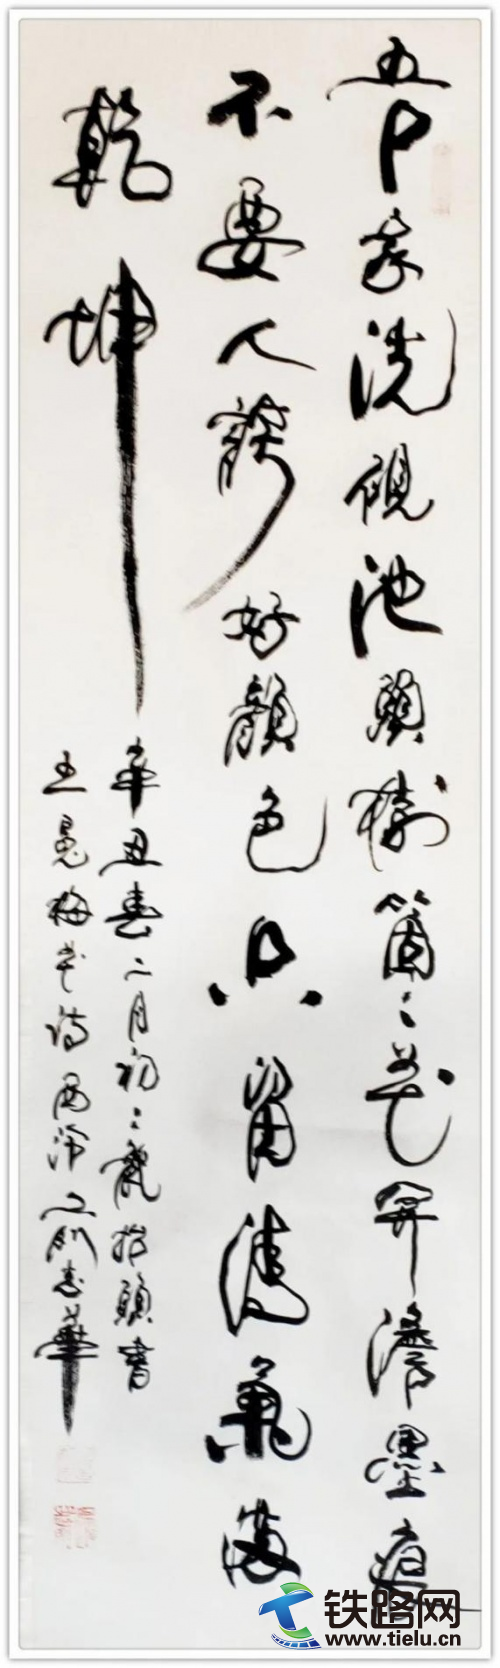 吾家洗硯池頭樹箇箇花開澹墨痕
不要人誇好顏色只留清氣滿
乾坤
辛丑春二月初二龍抬頭書
王冕梅花詩西泠志華
铁路网
www.tielu.cn